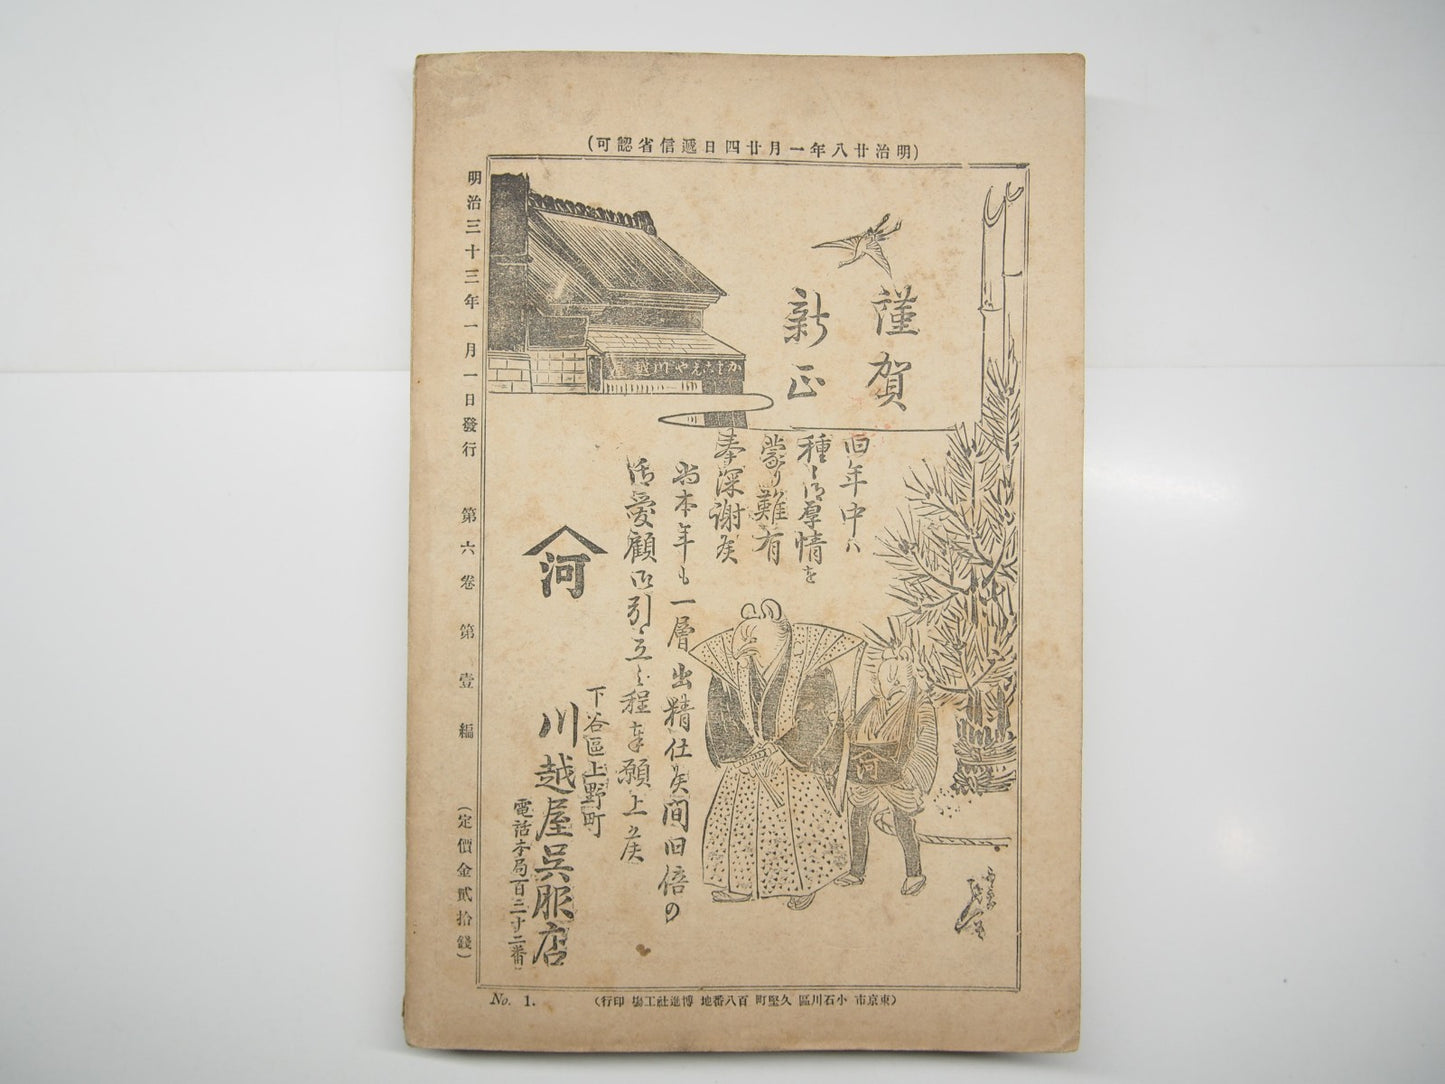 (明治廿八年一月廿四日遞信省認可)
明治三十三年一月一日發行　第六卷第壹編　(定價金貳拾錢)
謹賀
新正
かわごえや川越屋
旧年中ハ
種々御厚情を
蒙り難有
奉深謝候
尚本年も一層出精仕り候間旧倍の
御愛顧御引立之程奉願上候
河
下谷區上野町
川越屋呉服店
電話本局百三十二番
河
No. 1.
(東京市小石川區久堅町百八番地博進社工場印行)